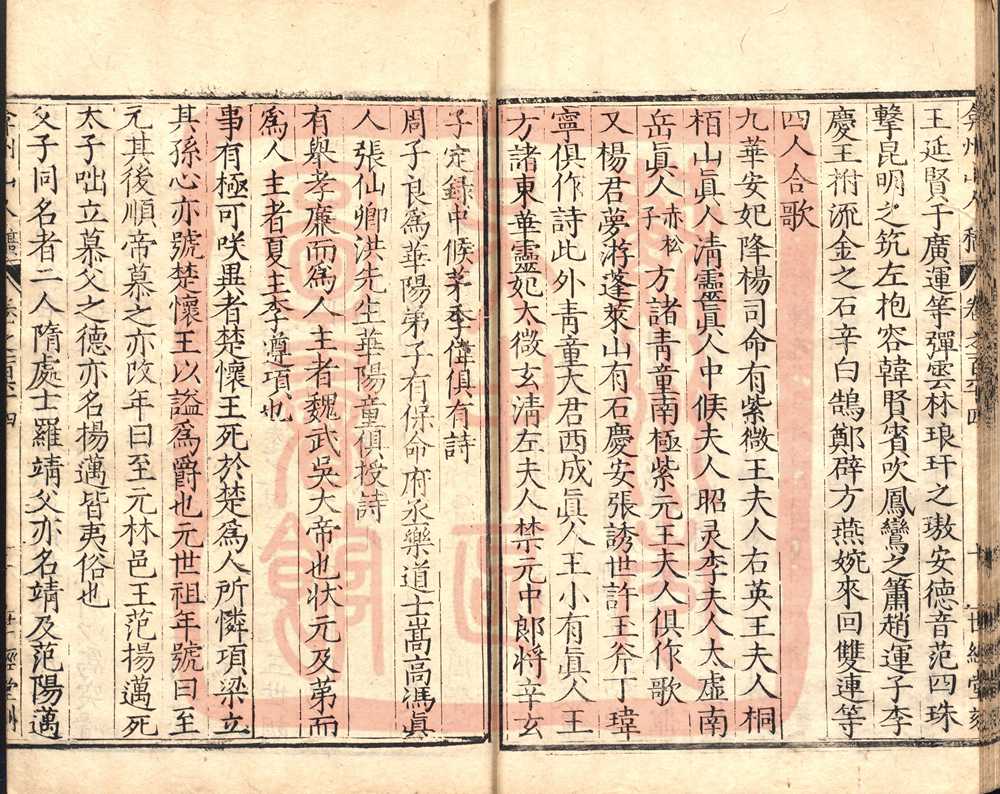 弇州山人稿 卷之一百六十四 十 世經堂刻
王延賢于廣運等彈雲林琅玕之璈安德音范四珠
擊昆明之筑左抱容韓賢賓吹鳳鸞之簫趙運子李
慶王拊流金之石辛白鵠鄭辟方燕婉來田雙連等
四人合歌
九華安妃降楊司命有紫微王夫人右英王夫人桐
栢山眞人清靈眞人中候夫人昭灵李夫人太虛南
岳眞人赤松子方諸青童南極紫元王夫人俱作歌
又楊君夢游蓬萊山有石慶安張誘世許玉斧丁瑋
寧俱作詩此外青童大君西成眞人王小有眞人王
方諸東華靈妃太微玄清左夫人禁元中郎將辛玄
子定録中候茅季偉俱有詩
周子良爲華陽弟子有保命府丞樂道士嵩高馮眞
人張仙卿洪先生華陽童俱授詩
有舉孝廉而爲人主者魏武吳大帝也狀元及第而
爲人主者夏主李遵項也
事有極可咲異者楚懷王死於楚爲人所憐項梁立
其孫心亦號楚懷王以謚爲爵也元世祖年號曰至
元其後順帝慕之亦改年曰至元林邑王范揚邁死
太子咄立慕父之德亦名楊邁皆夷俗也
父子同名者二人隋處士羅靖父亦名靖及范陽邁